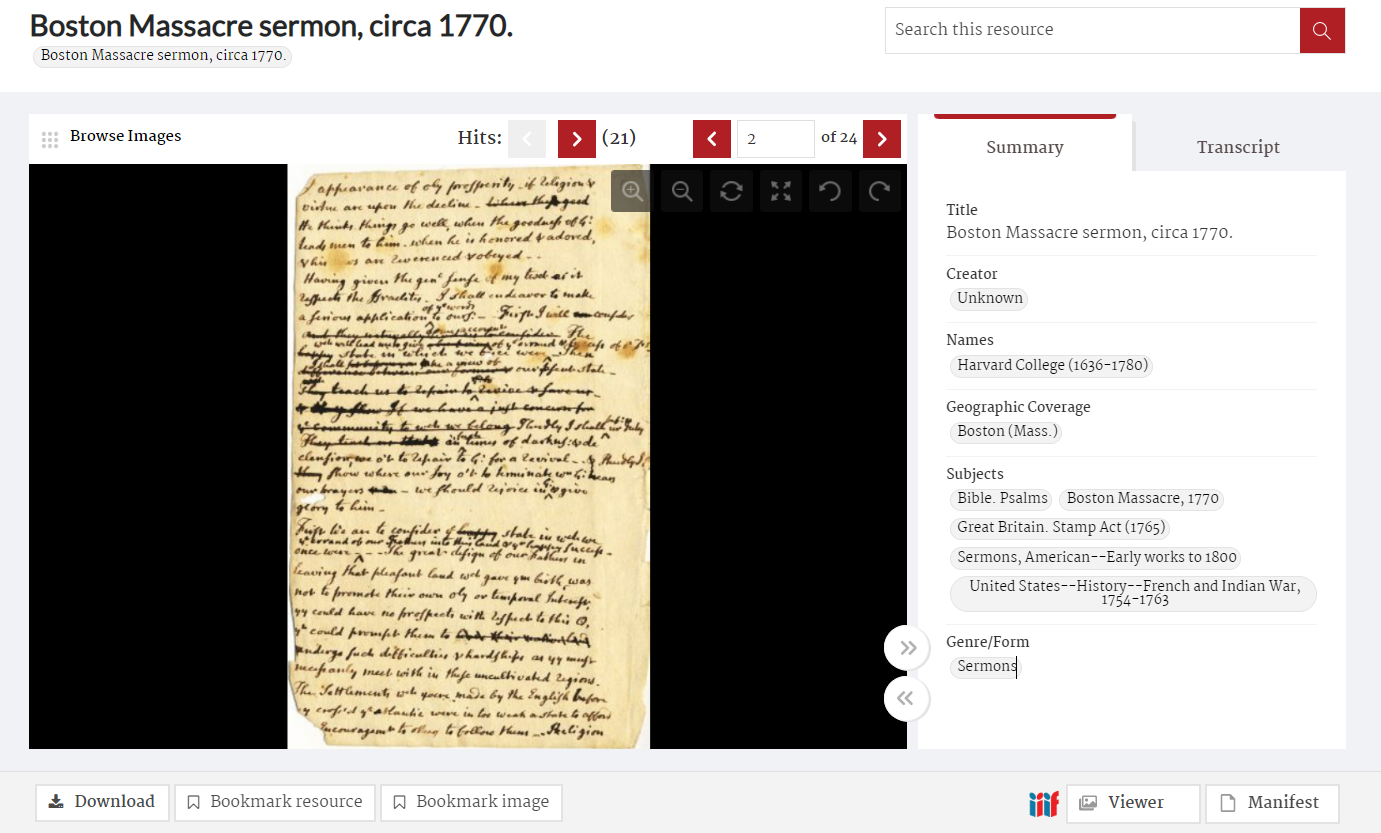 Boston Massacre sermon, circa 1770.
Boston Massacre sermon, circa 1770.
Search this resource
Browse Images
Hits:
(21)
2
of 24
appearance of prosperity, if Religion &
virtue are upon the decline
He thinks things go well, when the goodness of G:
leads men to him. when he is honored & adored,
& his are reverenced & obeyed
Having given the genl sense of my text as it
respects the Israelites. I shall endeavor to make
a serious application of ye words to ours: First I will consider
state in which we once were
our present state
to revive & save us
If we have a just concern for
community to wch we belong Thirdly I shall
They teach us in times of darkness & de
clension, we o't to repair to G: for a revival
Show where our Joy o't to terminate wn G: hears
our prayers we should rejoice in & give
glory to him
First We are to consider ye happy state in wch we
& errand of our Fathers into this land & ye happy success
once were The great design of our Fathers in
leaving that pleasant land wch gave ym birth, was
not to promote their own or temporal Interest,
yy could have no prospects with respect to this
yt could prompt them to
undergo such difficulties & hardships as yy must
necessarily meet with in these uncultivated regions.
The Settlements wch were made by the English before
yy cross'd ye atlantic were in too weak a state to afford
Encouragemt to to follow them Religion
Summary
Transcript
Title
Boston Massacre sermon, circa 1770.
Creator
Unknown
Names
Harvard College (1636-1780)
Geographic Coverage
Boston (Mass.)
Subjects
Bible. Psalms Boston Massacre, 1770
Great Britain. Stamp Act (1765)
Sermons, American--Early works to 1800
United States--History--French and Indian War,
1754-1763
Genre/Form
Sermons
Download
Bookmark resource
Bookmark image
iiif
Viewer
Manifest